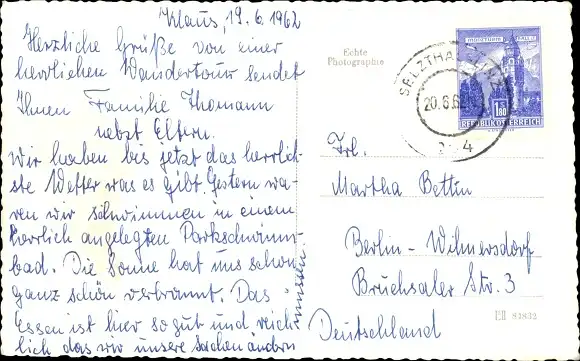 Klaus, 19.6.1962
Herzliche Grüße von einer
herrlichen Wandertour sendet
Ihnen Familie Thomann
nebst Eltern.
Wir haben bis jetzt das herrlich-
ste Wetter was es gibt. Gestern wa-
ren wir schwimmen in einem
herrlich angelegten Parkschwimm-
bad. Die Sonne hat uns schon
ganz schön verbrannt. Das
Essen ist hier so gut und reich-
lich das wir unsere Sachen ändern
müssen.
Echte
Photographie
SELZTHAL - LINZ
20.6.62
1.80
REPUBLIK ÖSTERREICH
Frl.
Martha Bettin
Berlin-Wilmersdorf
Bruchsaler Str. 3
Deutschland
Ell 84832